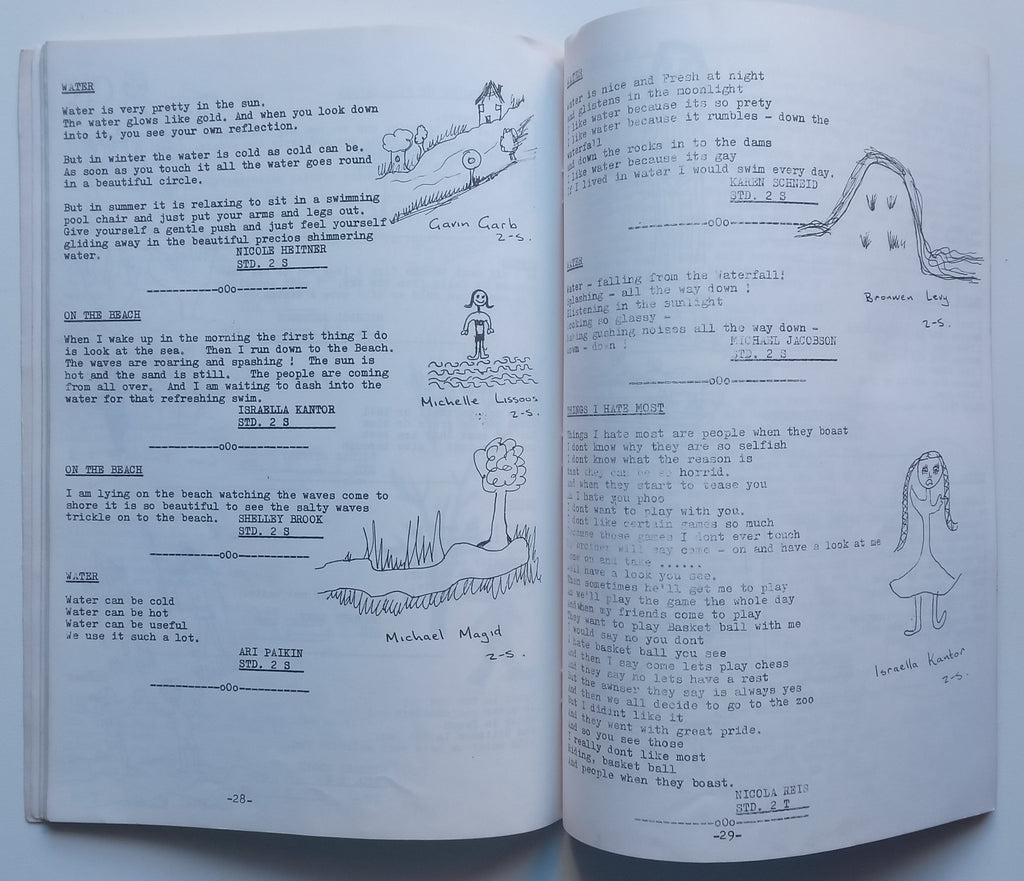 WATER
Water is very pretty in the sun.
The water glows like gold. And when you look down
into it, you see your own reflection.
But in winter the water is cold as cold can be.
As soon as you touch it all the water goes round
in a beautiful circle.
But in summer it is relaxing to sit in a swimming
pool chair and just put your arms and legs out.
Give yourself a gentle push and just feel yourself
gliding away in the beautiful precios shimmering
water.
NICOLE HEITNER
STD. 2 S
Gavin Garb
2-S.
---------------oOo---------------
ON THE BEACH
When I wake up in the morning the first thing I do
is look at the sea. Then I run down to the Beach.
The waves are roaring and spashing ! The sun is
hot and the sand is still. The people are coming
from all over. And I am waiting to dash into the
water for that refreshing swim.
ISRAELLA KANTOR
STD. 2 S
Michelle Lissoos
2-S.
---------------oOo---------------
ON THE BEACH
I am lying on the beach watching the waves come to
shore it is so beautiful to see the salty waves
trickle on to the beach.
SHELLEY BROOK
STD. 2 S
---------------oOo---------------
WATER
Water can be cold
Water can be hot
Water can be useful
We use it such a lot.
ARI PAIKIN
STD. 2 S
Michael Magid
2-S.
---------------oOo---------------
-28-
WATER
Water is nice and Fresh at night
and glistens in the moonlight
I like water because its so prety
I like water because it rumbles - down the
waterfall
and down the rocks in to the dams
I like water because its gay
If I lived in water I would swim every day.
KAREN SCHNEID
STD. 2 S
---------------oOo---------------
Bronwen Levy
2-S.
WATER
Water - falling from the Waterfall!
Splashing - all the way down !
Glistening in the sunlight
Looking so glassy -
gushing noises all the way down -
down - down !
MICHAEL JACOBSON
STD. 2 S
---------------oOo---------------
THINGS I HATE MOST
Things I hate most are people when they boast
I dont know why they are so selfish
I dont know what the reason is
that they can be so horrid.
And when they start to tease you
I hate you phoo
I dont want to play with you.
I dont like certain games so much
Because those games I dont ever touch
My brother will say come - on and have a look at me
Come on and take ......
have a look you see.
Then sometimes he'll get me to play
we'll play the game the whole day
And when my friends come to play
They want to play Basket ball with me
I would say no you dont
I hate basket ball you see
And then I say come lets play chess
And they say no lets have a rest
But the awnser they say is always yes
And then we all decide to go to the zoo
But I didint like it
And they went with great pride.
And so you see those
I really dont like most
Riding, basket ball
And people when they boast.
NICOLA REIS
STD. 2 T
Israella Kantor
2-S.
---------------oOo---------------
-29-